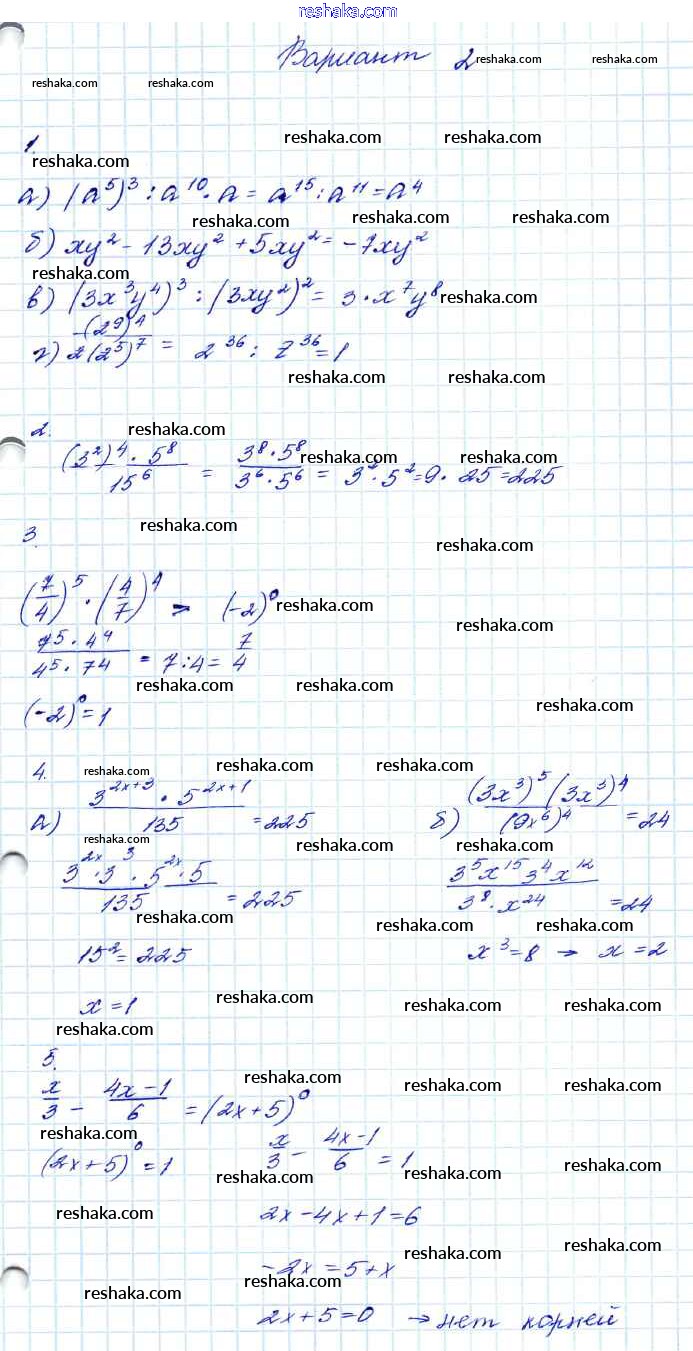 reshaka.com
Вариант 2 reshaka.com reshaka.com
reshaka.com reshaka.com
1. reshaka.com reshaka.com
reshaka.com
а) (a^5)^3 : a^10 · a = a^15 : a^11 = a^4
reshaka.com reshaka.com reshaka.com
б) xy^2 - 13xy^2 + 5xy^2 = -7xy^2
reshaka.com
в) (3x^3y^4)^3 : (3xy^2)^2 = 3 · x^7y^8 reshaka.com
г) (2^9)^4 / 2(2^5)^7 = 2^36 : 2^36 = 1
reshaka.com reshaka.com
2. reshaka.com
(3^2)^4 · 5^8 / 15^6 = 3^8 · 5^8 / 3^6 · 5^6 = 3^2 · 5^2 = 9 · 25 = 225
reshaka.com reshaka.com
3. reshaka.com
reshaka.com
(7/4)^5 · (4/7)^4 > (-2)^0 reshaka.com
reshaka.com
7^5 · 4^4 / 4^5 · 7^4 = 7 : 4 = 7/4
reshaka.com reshaka.com
reshaka.com
(-2)^0 = 1
4. reshaka.com reshaka.com reshaka.com
а) 3^(2x+3) · 5^(2x+1) / 135 = 225 б) (3x^3)^5 (3x^3)^4 / (9x^6)^4 = 24
reshaka.com reshaka.com reshaka.com
3^2x · 3^3 · 5^2x · 5 / 135 = 225 3^5x^15 3^4x^12 / 3^8 · x^24 = 24
reshaka.com reshaka.com reshaka.com
15^2 = 225 x^3 = 8 → x = 2
x = 1 reshaka.com reshaka.com reshaka.com
reshaka.com
5.
reshaka.com reshaka.com reshaka.com
x/3 - 4x-1/6 = (2x+5)^0
reshaka.com
(2x+5)^0 = 1 x/3 - 4x-1/6 = 1
reshaka.com reshaka.com reshaka.com
reshaka.com
2x - 4x + 1 = 6
reshaka.com reshaka.com
-2x = 5 + x
reshaka.com reshaka.com
2x + 5 = 0 → нет корней